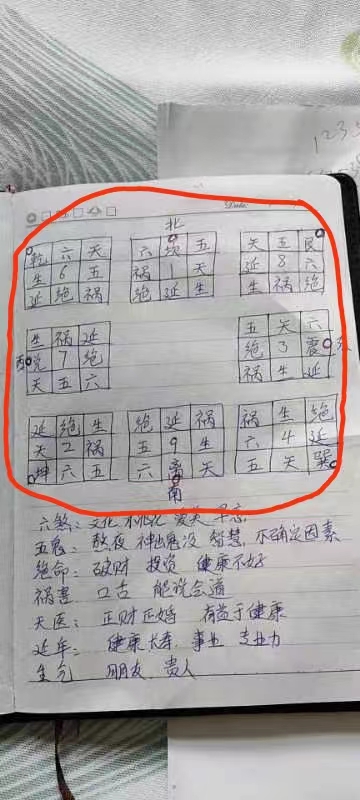 123
Date:
北
乾 六 天 六 坎 五 天 五 艮
生 6 五 祸 1 天 延 8 六
延 绝 祸 绝 延 生 生 祸 绝
生 祸 延 五 天 六
西 兑 7 绝 绝 3 震 东
天 五 六 祸 生 延
延 绝 生 绝 延 祸 祸 生 绝
天 2 祸 五 9 生 六 4 延
坤 六 五 六 离 天 五 天 巽
南
六煞：文化 桃花 爱美 早恋
五鬼：熬夜 神出鬼没 智慧 不确定因素
绝命：破财 投资 健康不好
祸害：口舌 能说会道
天医：正财正婚 有益于健康
延年：健康长寿 事业 专业力
生气 朋友 贵人